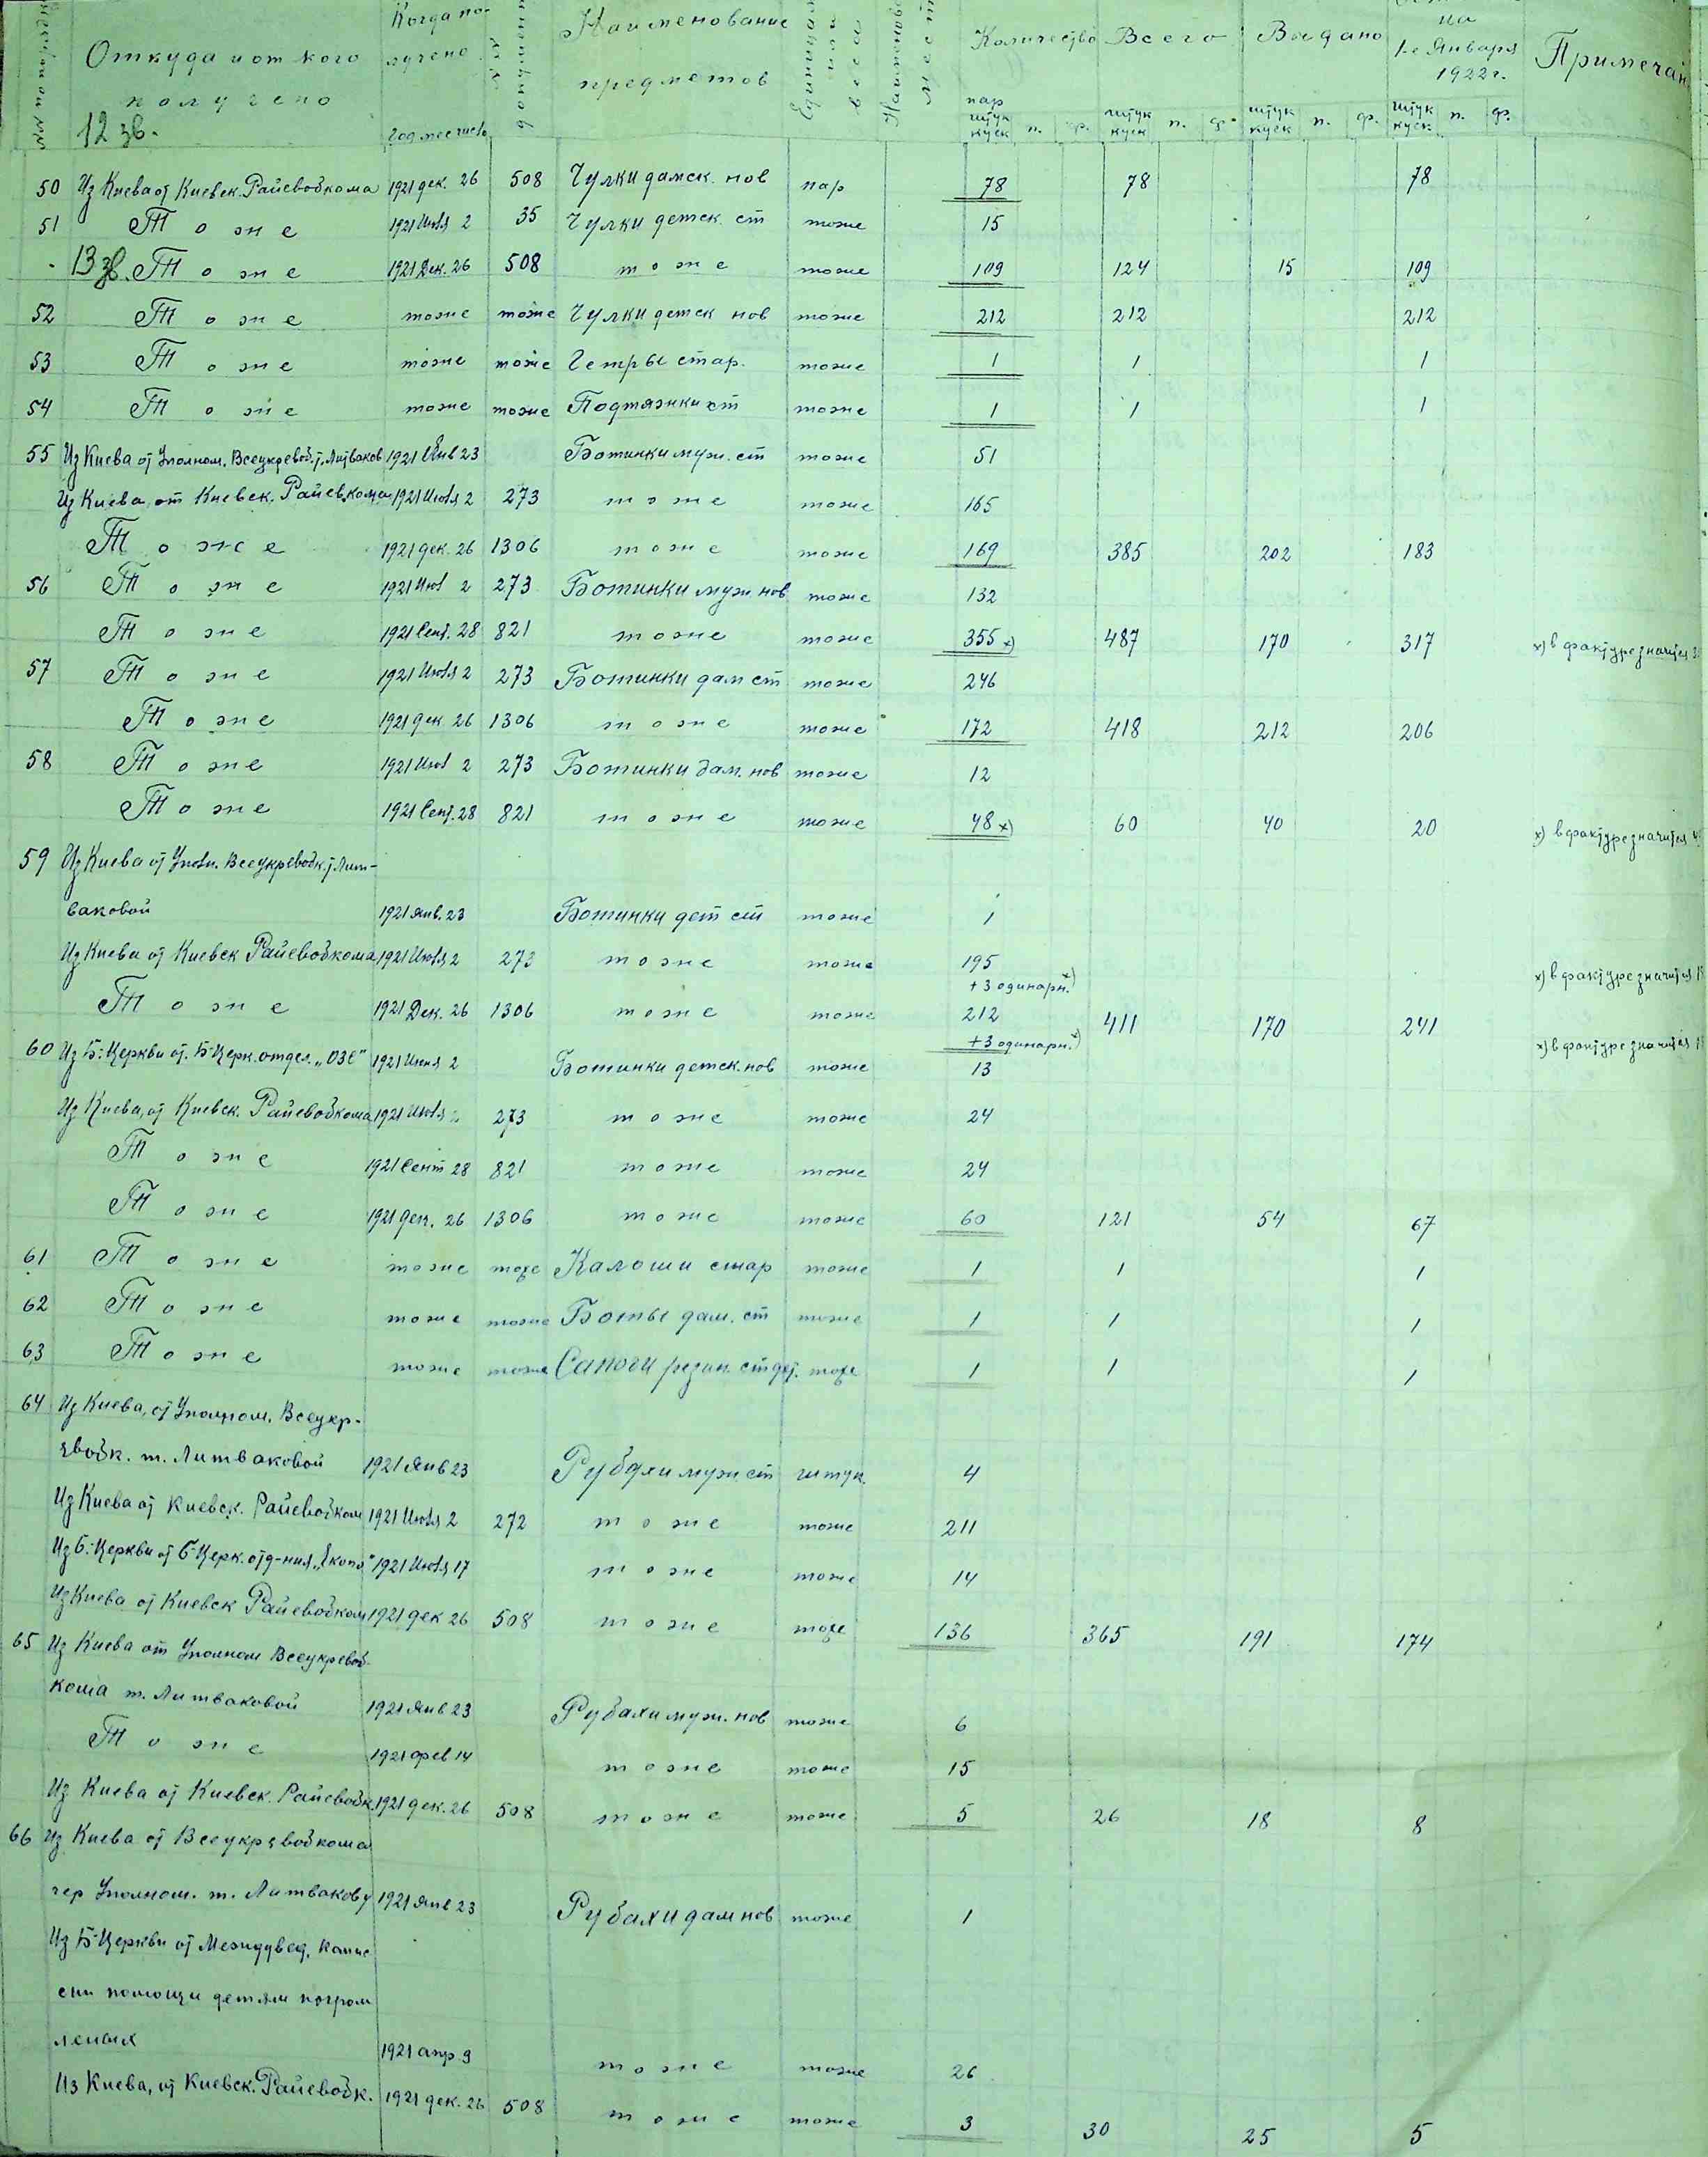 Откуда и от кого получено
12 зв.
Когда получено
год месяц число
Наименование предметов
Единица или веса
Количество
Всего
Выдано
на 1-е Января 1922 г.
Примечан
пар штук куск п. ф. штук куск п. ф. штук куск п. ф. штук куск. п. ф.
50 Из Киева от Киевск. Райевобкома 1921 дек. 26 508 Чулки дамск. нов пар 78 78 78
51 Тоже 1921 Июля 2 35 Чулки детск. ст тоже 15
13 зв. Тоже 1921 Дек. 26 508 тоже тоже 109 124 15 109
52 Тоже тоже тоже Чулки детск нов тоже 212 212 212
53 Тоже тоже тоже Гетры стар. тоже 1 1 1
54 Тоже тоже тоже Подтяжки ст тоже 1 1 1
55 Из Киева от Уполном. Всеукревоб. т. Литваков 1921 Янв 23 Ботинки муж. ст тоже 51
Из Киева, от Киевск. Райев.кома 1921 Июля 2 273 тоже тоже 165
Тоже 1921 дек. 26 1306 тоже тоже 169 385 202 183
56 Тоже 1921 Июл 2 273 Ботинки муж нов тоже 132
Тоже 1921 Сент. 28 821 тоже тоже 355 х) 487 170 317 х) в фактуре значится
57 Тоже 1921 Июля 2 273 Ботинки дам ст тоже 246
Тоже 1921 дек. 26 1306 тоже тоже 172 418 212 206
58 Тоже 1921 Июл 2 273 Ботинки дам. нов тоже 12
Тоже 1921 Сент. 28 821 тоже тоже 48 х) 60 40 20 х) в фактуре значится
59 Из Киева от Уполн. Всеукревобк. т Лит-
ваковой 1921 янв. 23 Ботинки дет ст тоже 1
Из Киева от Киевск Райевобкома 1921 Июля 2 273 тоже тоже 195 х) в фактуре значится
+ 3 одинарн. х)
Тоже 1921 Дек. 26 1306 тоже тоже 212 411 170 241
+ 3 одинарн. х) х) в фактуре значится
60 Из Б-Церкви от. Б-Церк. отдел. „ОЗЕ" 1921 Июня 2 Ботинки детск. нов тоже 13
Из Киева, от Киевск. Райевобкома 1921 Июля 2 273 тоже тоже 24
Тоже 1921 Сент 28 821 тоже тоже 24
Тоже 1921 дек. 26 1306 тоже тоже 60 121 54 67
61 Тоже тоже тоже Калоши стар тоже 1 1 1
62 Тоже тоже тоже Боты дам. ст тоже 1 1 1
63 Тоже тоже тоже Сапоги резин. ст дет. тоже 1 1 1
64 Из Киева, от Уполном. Всеукр-
евобк. т. Литваковой 1921 Янв 23 Рубахи муж ст штук. 4
Из Киева от Киевск. Райевобком 1921 Июля 2 272 тоже тоже 211
Из Б.-Церкви от Б-Церк. отд-ния „Екопо" 1921 Июля 17 тоже тоже 14
Из Киева от Киевск Райевобком 1921 дек 26 508 тоже тоже 136 365 191 174
65 Из Киева от Уполном Всеукревоб-
кома т. Литваковой 1921 Янв 23 Рубахи муж. нов тоже 6
Тоже 1921 фев 14 тоже тоже 15
Из Киева от Киевск. Райевобк. 1921 дек. 26 508 тоже тоже 5 26 18 8
66 Из Киева от Всеукревобкома
чер Уполном. т. Литвакову 1921 Янв 23 Рубахи дам нов тоже 1
Из Б-Церкви от Междувед. комис
сии помощи детям погром
леных 1921 апр 9 тоже тоже 26
Из Киева, от Киевск. Райевобк. 1921 дек. 26 508 тоже тоже 3 30 25 5